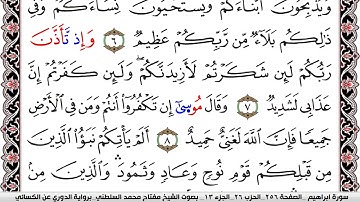 وَيُذَبِّحُونَ أَبْنَآءَكُمْ وَيَسْتَحْيُونَ نِسَآءَكُمْ وَفِي
ذَٰلِكُم بَلَآءٌ مِّن رَّبِّكُمْ عَظِيمٌ ٦ وَإِذ تَّأَذَّنَ
رَبُّكُمْ لَئِن شَكَرْتُمْ لَأَزِيدَنَّكُمْ وَلَئِن كَفَرْتُمْ إِنَّ
عَذَابِي لَشَدِيدٌ ٧ وَقَالَ مُوسَىٰٓ إِن تَكْفُرُوٓا۟ أَنتُمْ وَمَن فِي ٱلْأَرْضِ
جَمِيعًا فَإِنَّ ٱللَّهَ لَغَنِيٌّ حَمِيدٌ ٨ أَلَمْ يَأْتِكُمْ نَبَؤُا۟ ٱلَّذِينَ
مِن قَبْلِكُمْ قَوْمِ نُوحٍ وَعَادٍ وَثَمُودَ وَٱلَّذِينَ مِن
سورة ابراهيم . الصفحة ٢٥٦ الحزب ٢٦ الجزء ١٣ بصوت الشيخ مفتاح محمد السلطني . برواية الدوري عن الكسائي